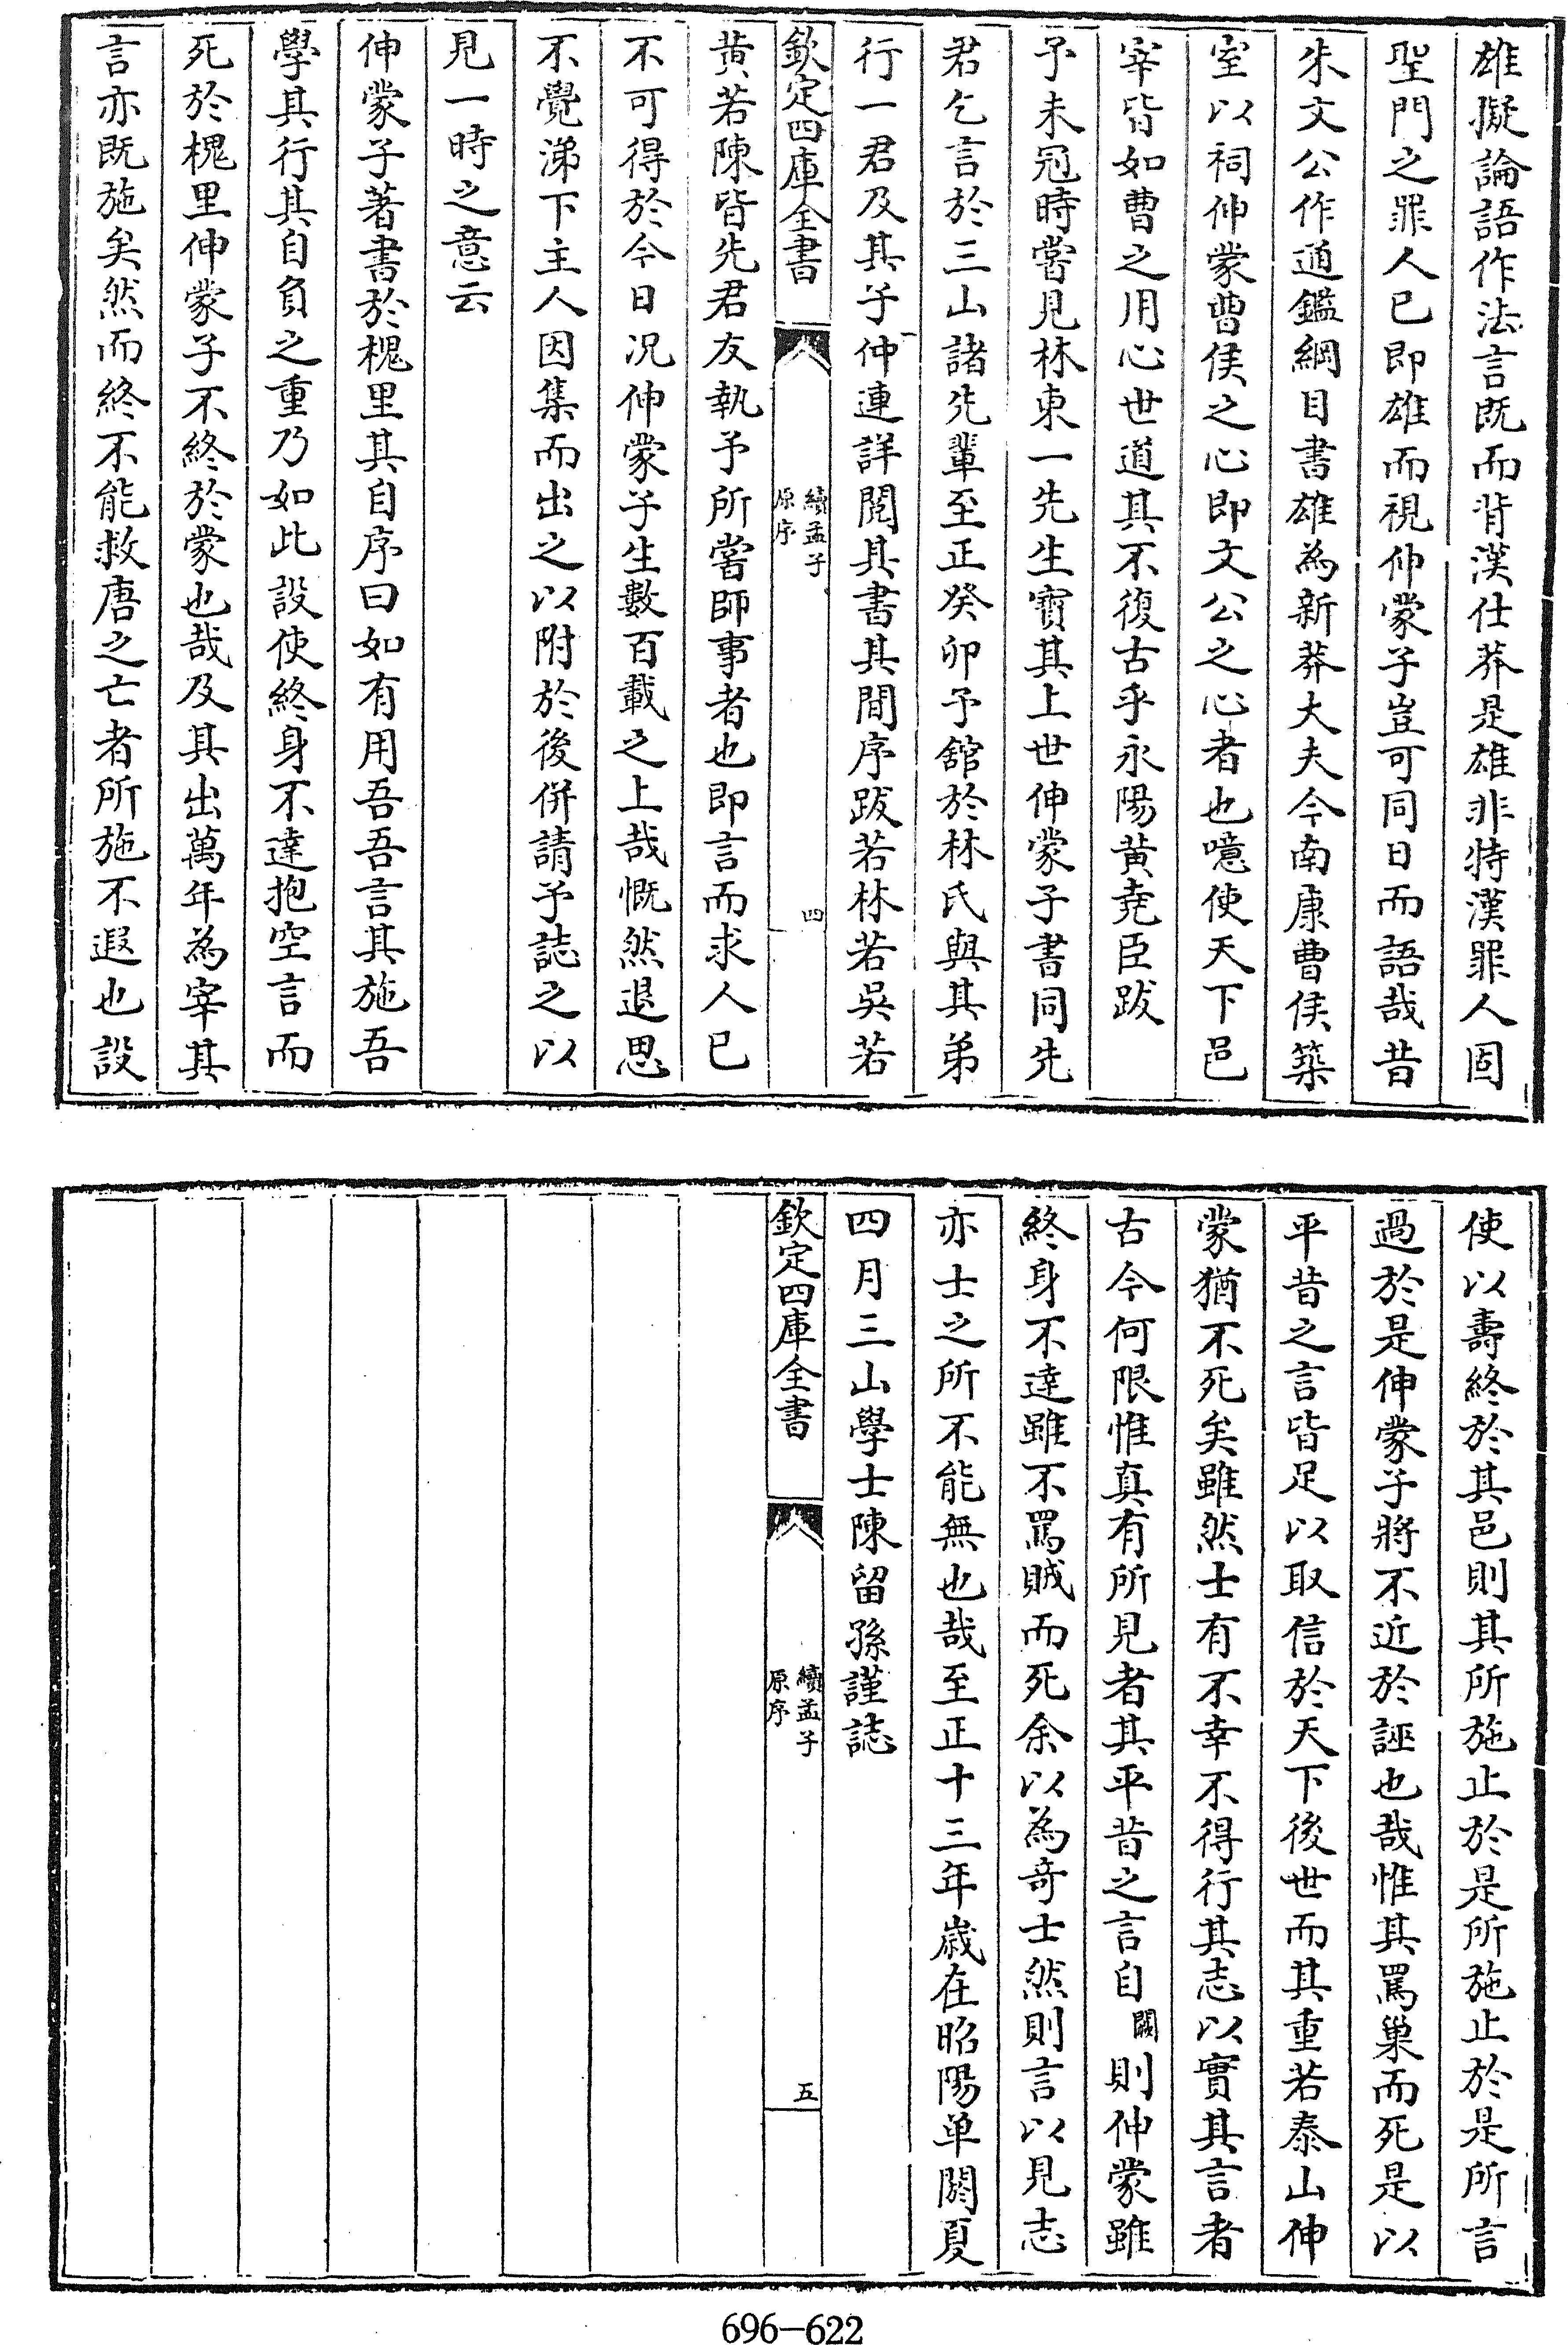 雄擬論語作法言既而背漢仕莽是雄非特漢罪人固
聖門之罪人已即雄而視伸蒙子豈可同日而語哉昔
朱文公作通鑑綱目書雄為新莽大夫今南康曹侯築
室以祠伸蒙曹侯之心即文公之心者也噫使天下邑
宰皆如曹之用心世道其不復古乎永陽黄堯臣跋
予未冠時嘗見林東一先生寶其上世伸蒙子書同先
君乞言於三山諸先輩至正癸卯予舘於林氏與其弟
行一君及其子仲連詳閲其書其間序跋若林若吳若
欽定四庫全書
續孟子
原序
四
黄若陳皆先君友執予所嘗師事者也即言而求人已
不可得於今日况伸蒙子生數百載之上哉慨然退思
不覺涕下主人因集而出之以附於後併請予誌之以
見一時之意云
伸蒙子著書於槐里其自序曰如有用吾吾言其施吾
學其行其自負之重乃如此設使終身不達抱空言而
死於槐里伸蒙子不終於蒙也哉及其出萬年為宰其
言亦既施矣然而終不能救唐之亡者所施不遐也設
使以壽終於其邑則其所施止於是所施止於是所言
過於是伸蒙子將不近於誣也哉惟其罵巢而死是以
平昔之言皆足以取信於天下後世而其重若泰山伸
蒙猶不死矣雖然士有不幸不得行其志以實其言者
古今何限惟真有所見者其平昔之言自闕則伸蒙雖
終身不達雖不罵賊而死余以為奇士然則言以見志
亦士之所不能無也哉至正十三年歲在昭陽单閼夏
四月三山學士陳留孫謹誌
欽定四庫全書
續孟子
原序
五
696-622